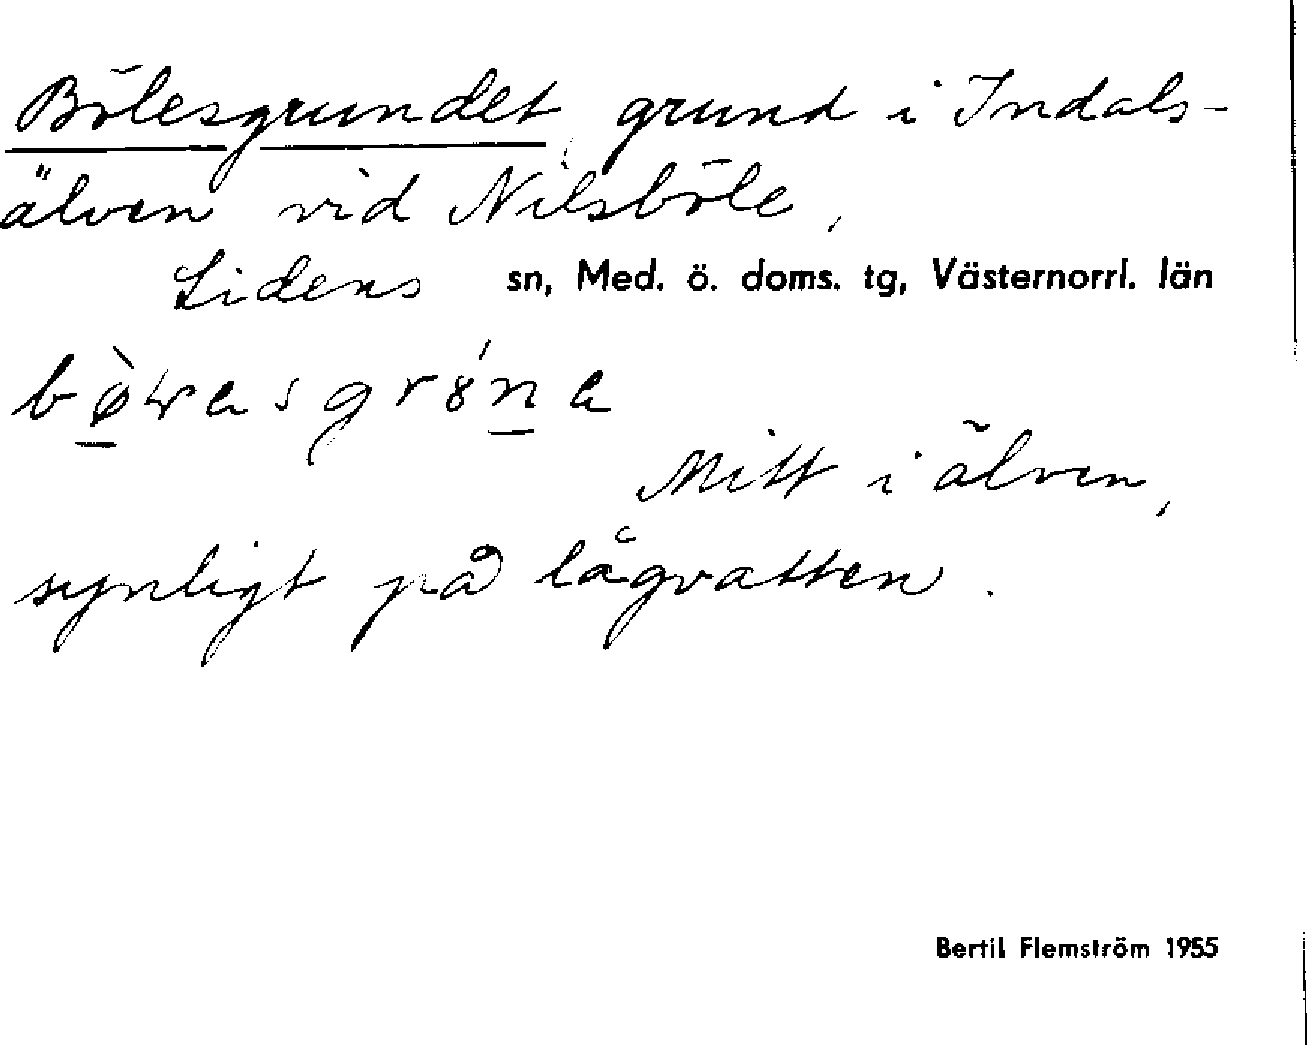 Bölesgrundet, grund i Indals-
älven vid Nilsböle,
Lidens sn, Med. ö. doms. tg, Västernorrl. län
Mitt i älven,
synligt på lågvatten.
Bertil Flemström 1955